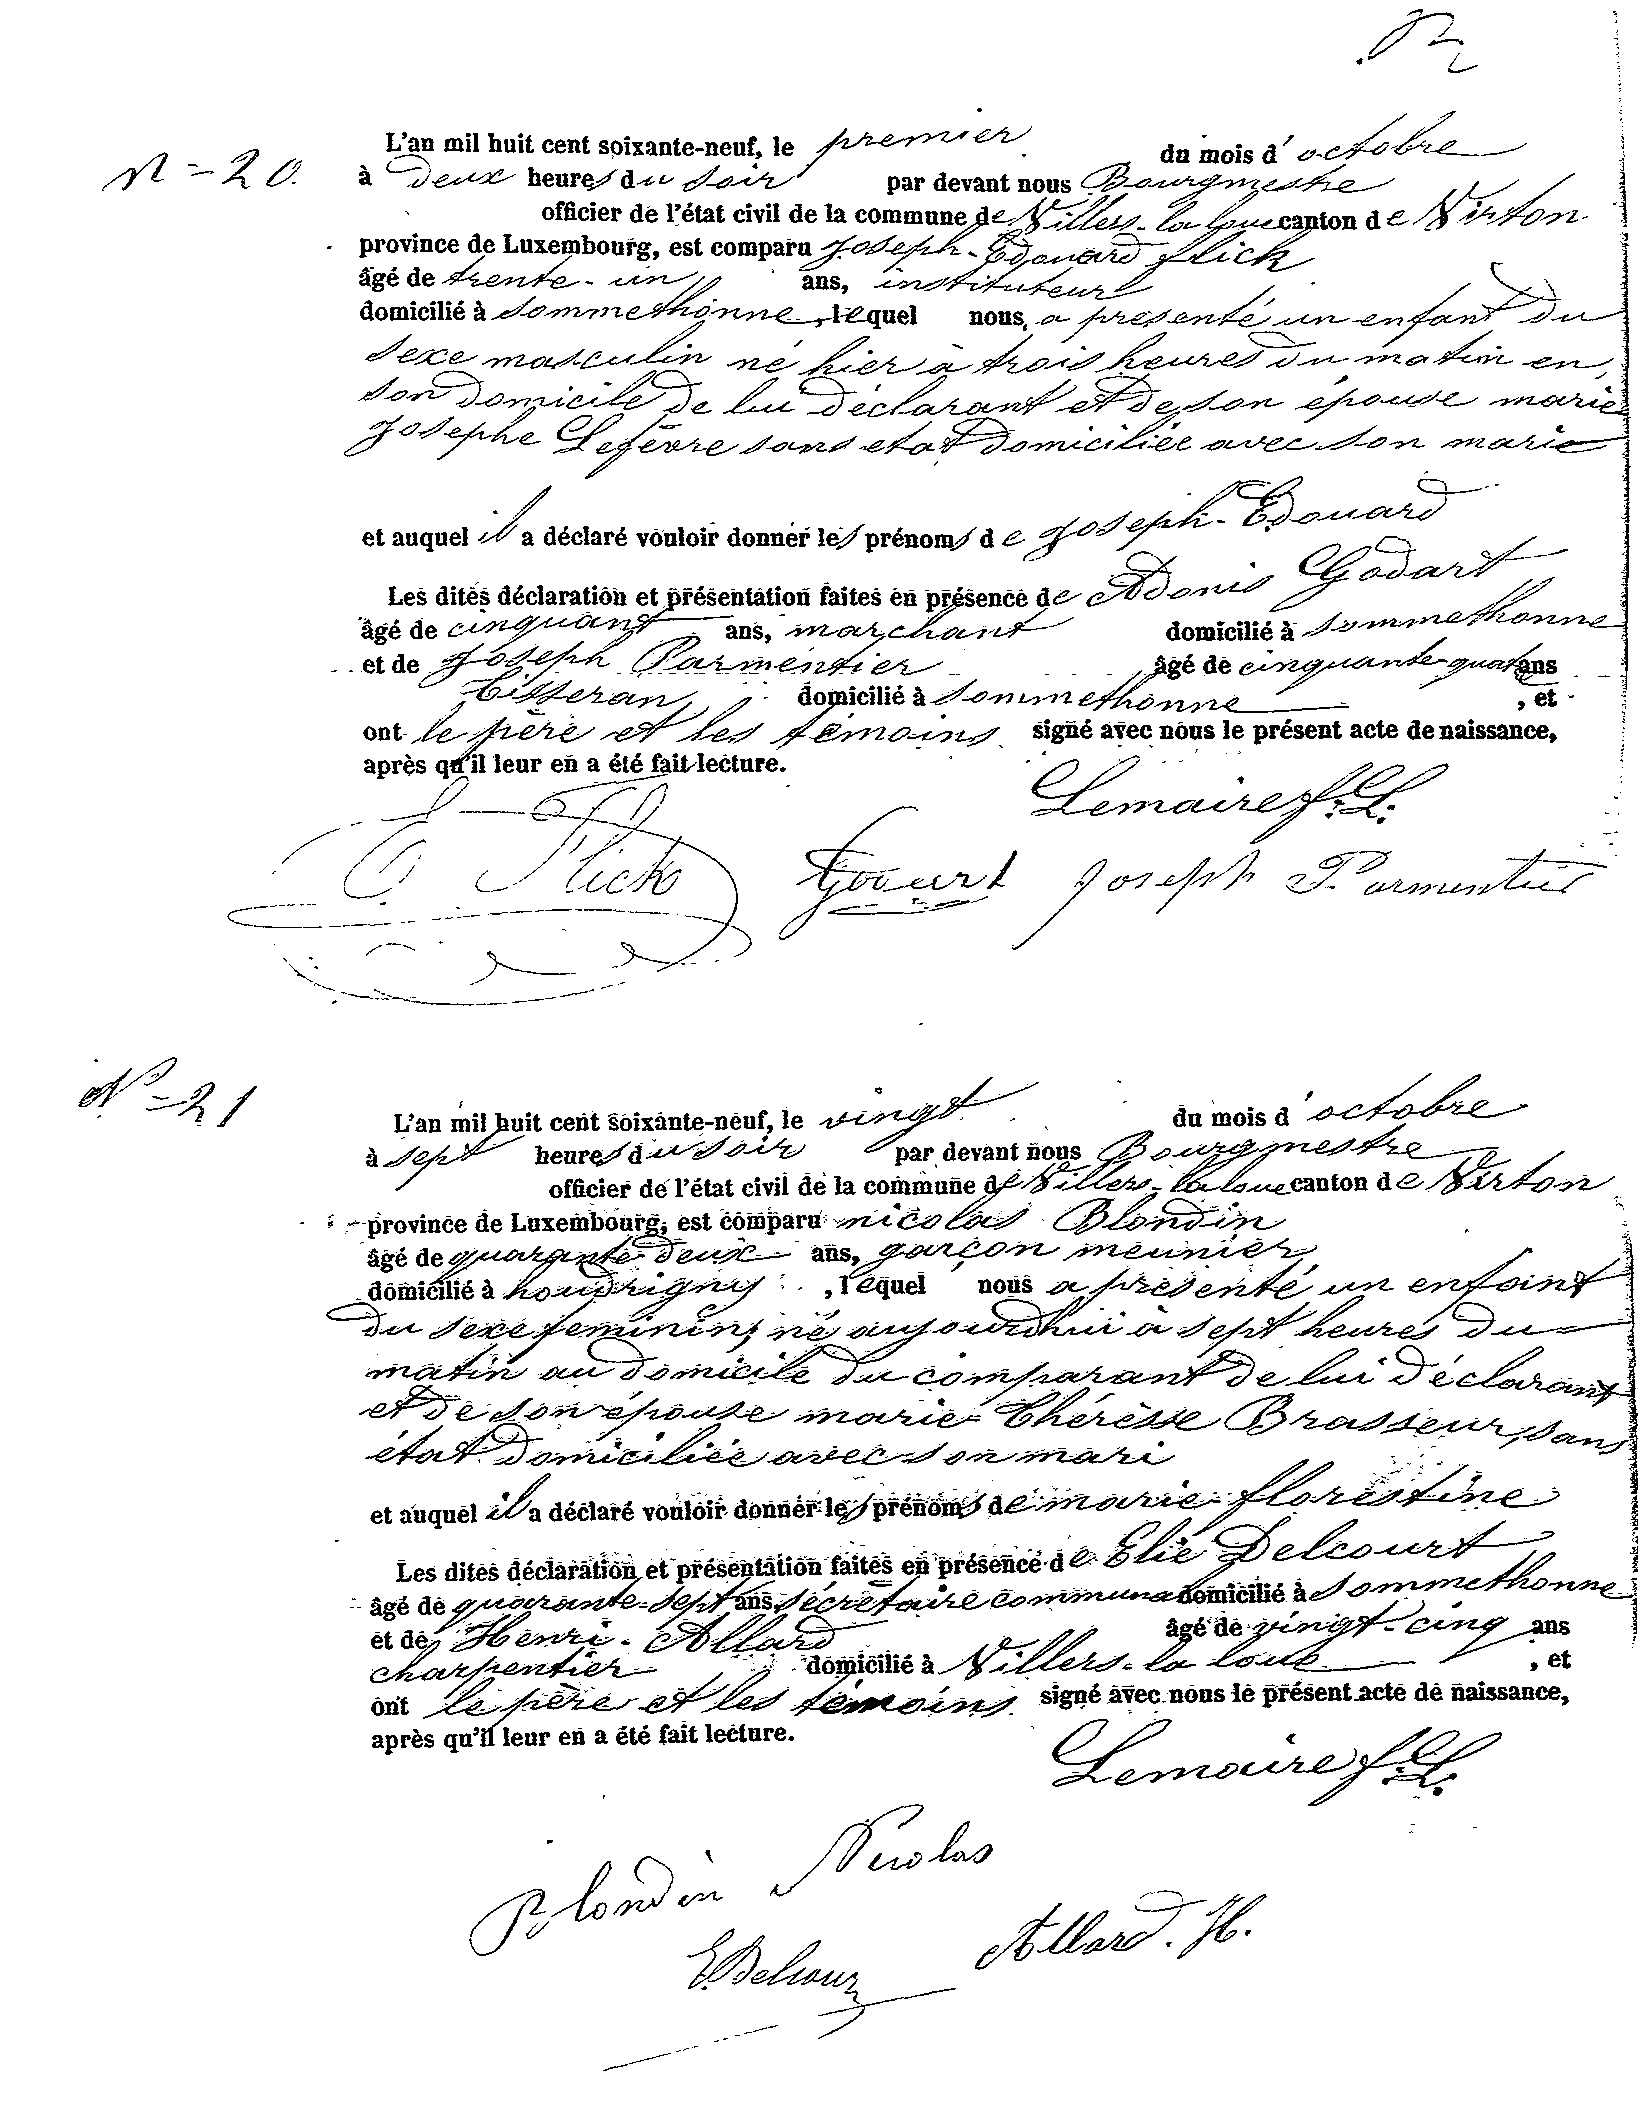 N = 20.
L'an mil huit cent soixante-neuf, le premier du mois d'octobre
à deux heures du soir par devant nous Bourgmestre
officier de l'état civil de la commune de Villers-la loue canton de Virton
province de Luxembourg, est comparu Joseph-Edouard flick
âgé de trente-un ans, instituteur
domicilié à Sommethonne, lequel nous a présenté un enfant du
sexe masculin né hier à trois heures du matin en
son domicile de lui déclarant et de son épouse marie
Josephe Lefèvre sans etat domiciliée avec son marie
et auquel il a déclaré vouloir donner les prénoms de Joseph-Edouard
Les dites déclaration et présentation faites en présence de Adonis Godart
âgé de cinquant ans, marchant domicilié à Sommethonne
et de Joseph Parmentier âgé de cinquante-quat ans
tisseran, domicilié à Sommethonne, et
ont le père et les témoins signé avec nous le présent acte de naissance,
après qu'il leur en a été fait lecture.
Lemaire f. L.
E. Flick Godart Joseph Parmentier
N° = 21
L'an mil huit cent soixante-neuf, le vingt du mois d'octobre
à sept heures du soir par devant nous Bourgmestre
officier de l'état civil de la commune de Villers-la loue canton de Virton
province de Luxembourg, est comparu nicolas Blondin
âgé de quarante-deux ans, garçon meunier,
domicilié à houdrigny, lequel nous a présenté un enfant
du sexe feminin, né aujourdhui à sept heures du
matin au domicile du comparant de lui déclarant
et de son épouse marie-Thérèsse Brasseur, sans
état domiciliée avec son mari
et auquel il a déclaré vouloir donner les prénoms de marie-florestine
Les dites déclaration et présentation faites en présence de Elie Delcourt
âgé de quarante-sept ans, sécrétaire communal domicilié à Sommethonne
et de Henri-Allard âgé de vingt-cinq ans
charpentier domicilié à Villers-la loue, et
ont le père et les témoins signé avec nous le présent acte de naissance,
après qu'il leur en a été fait lecture.
Lemaire f. L.
Blondin Nicolas
E Delcour Allard. H.